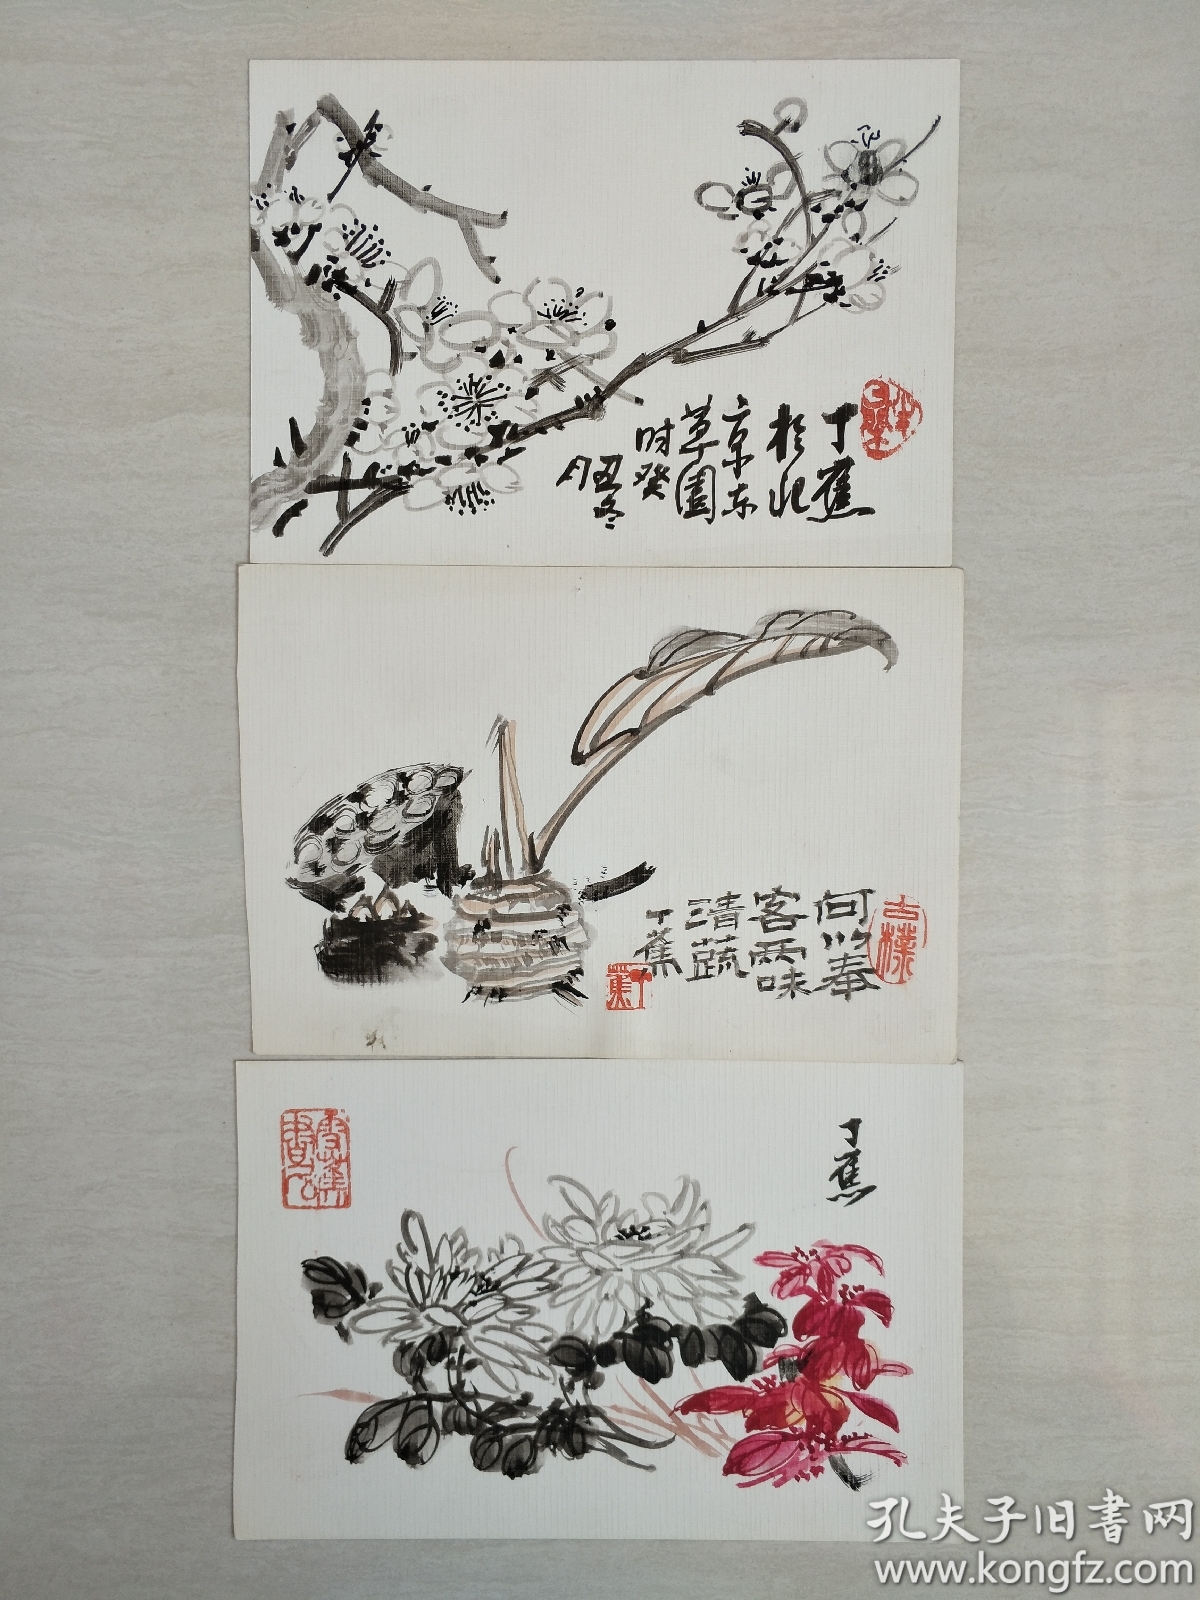 丁蕉
於北
京东
草园
时癸
丑冬
月
何以奉
客两味
清蔬
丁蕉
古朴
丁蕉
丁蕉
孔夫子旧书网
www.kongfz.com